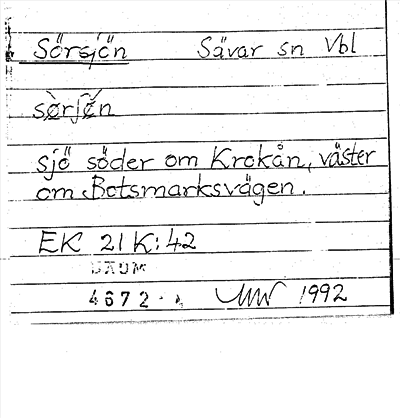 Sörsjön Sävar sn Vbl
sø̀rjø̃n
sjö söder om Krokån, väster
om Botsmarksvägen.
EK 21 K:42
DAUM
4672. 1992